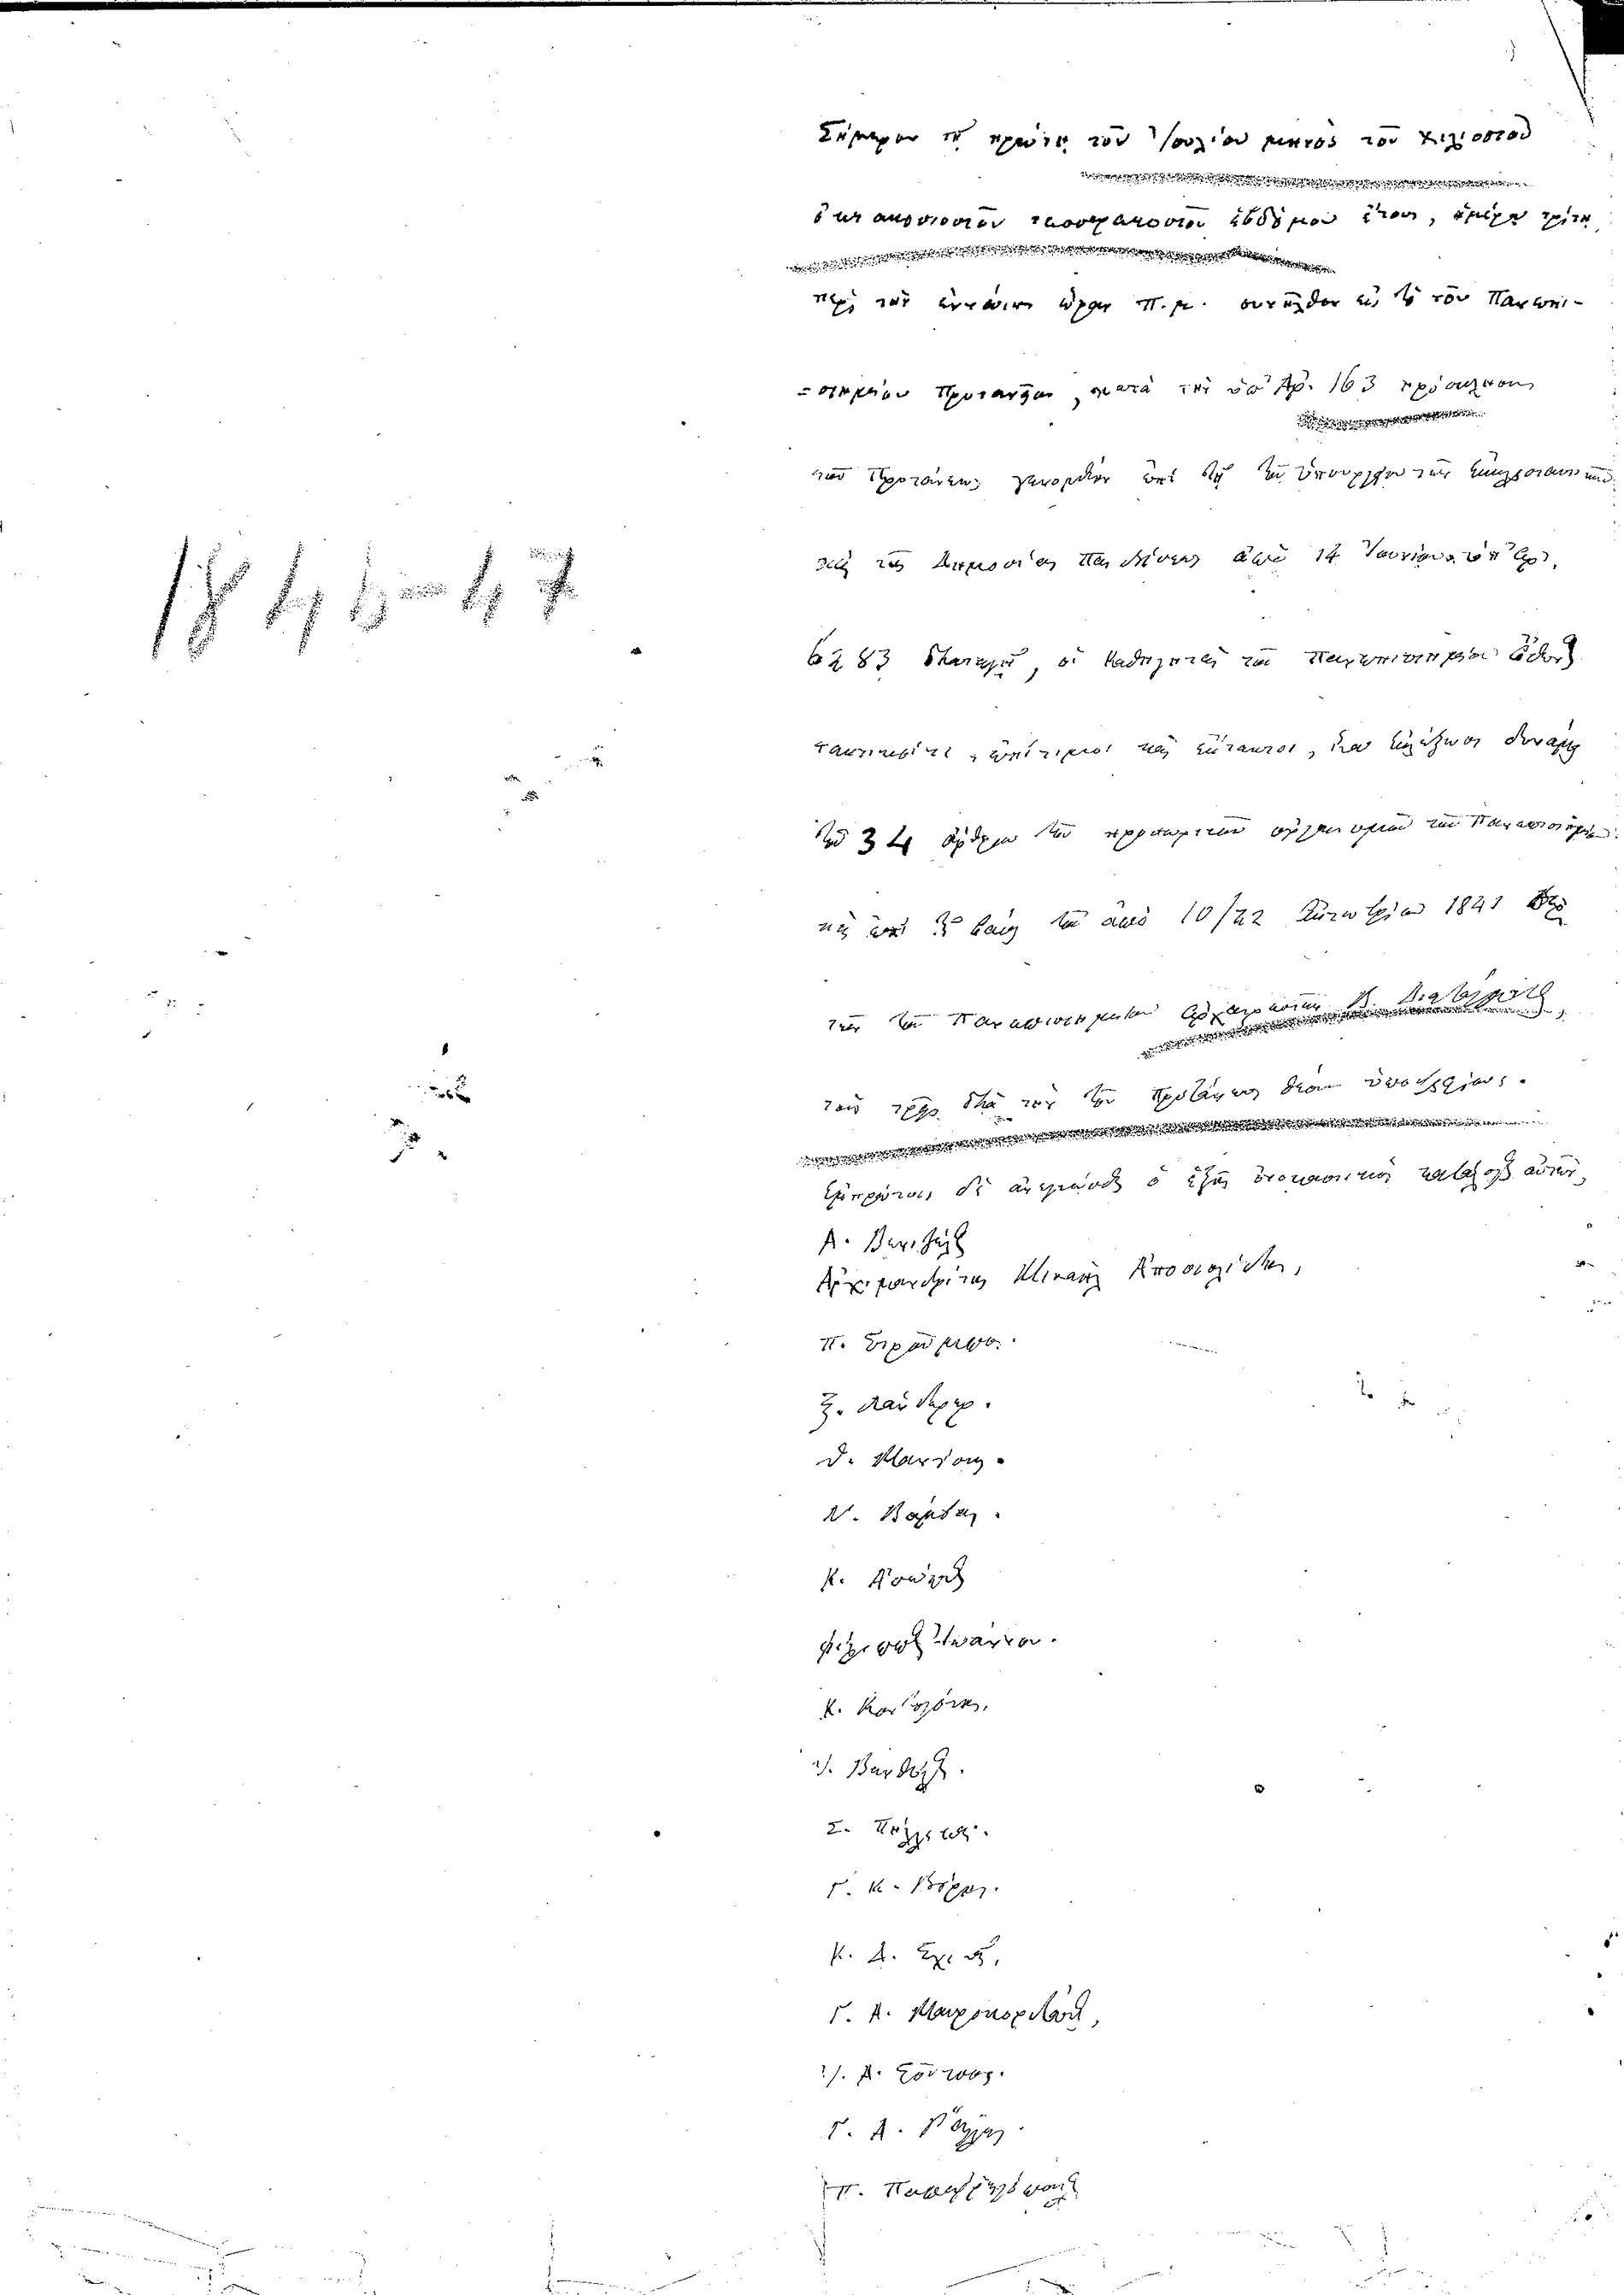 1846-47
Σήμερον τῇ πρώτῃ τοῦ Ἰουλίου μηνὸς τοῦ χιλιοστοῦ
ὀκτακοσιοστοῦ τεσσαρακοστοῦ ἑβδόμου ἔτους, ἡμέρᾳ τρίτῃ
περὶ τὴν ἐννάτην ὥραν π.μ. συνῆλθον εἰς τὸ τοῦ Πανεπι-
=στημίου Πρυτανεῖον, κατὰ τὴν ὑπ' Ἀρ. 163 πρόσκλησιν
τοῦ Πρυτάνεως γενομένην ἐπὶ τῇ τοῦ ὑπουργείου τῶν Ἐκκλησιαστικῶν
καὶ τῆς Δημοσίας Παιδεύσεως ἀπὸ 14 Ἰουνίου ὑπ' Ἀρ.
6283 διαταγῇ, οἱ Καθηγηταὶ τοῦ Πανεπιστημίου Ὄθωνος
τακτικοί τε, ἐπίτιμοι καὶ ἔκτακτοι, ἵνα ἐκλέξωσι δυνάμει
τοῦ 34 ἄρθρου τοῦ προσωρινοῦ ὀργανισμοῦ τοῦ Πανεπιστημίου
καὶ ἐπὶ τῇ βάσει τοῦ ἀπὸ 10/22 1841
τῶν τοῦ Πανεπιστημίου ἀρχαιρεσιῶν Β. Διατάγματος,
τοὺς τρεῖς διὰ τὴν τοῦ Πρυτάνεως θέσιν ὑποψηφίους.
δὲ ἀνεγνώσθη ὁ ἑξῆς ὀνομαστικὸς κατάλογος αὐτῶν,
Ἀρχιμανδρίτης Μισαὴλ Ἀποστολίδης,
Π. Στρούμπος.
Ξ. Λάνδερερ.
Θ. Μανούσης.
Ν. Βάμβας.
Κ. Ἀσώπιος
Φίλιππος Ἰωάννου.
Κ. Κοντογόνης.
Ἰ. Βενθύλος.
Σ. Πήλληκας.
Γ. Κ. Βούρης.
Κ. Δ. Σχινᾶς,
Γ. Α. Μαυροκορδάτος,
Ἰ. Α. Σοῦτσος.
Γ. Α. Ῥάλλης
Π. Παπαρρηγόπουλος